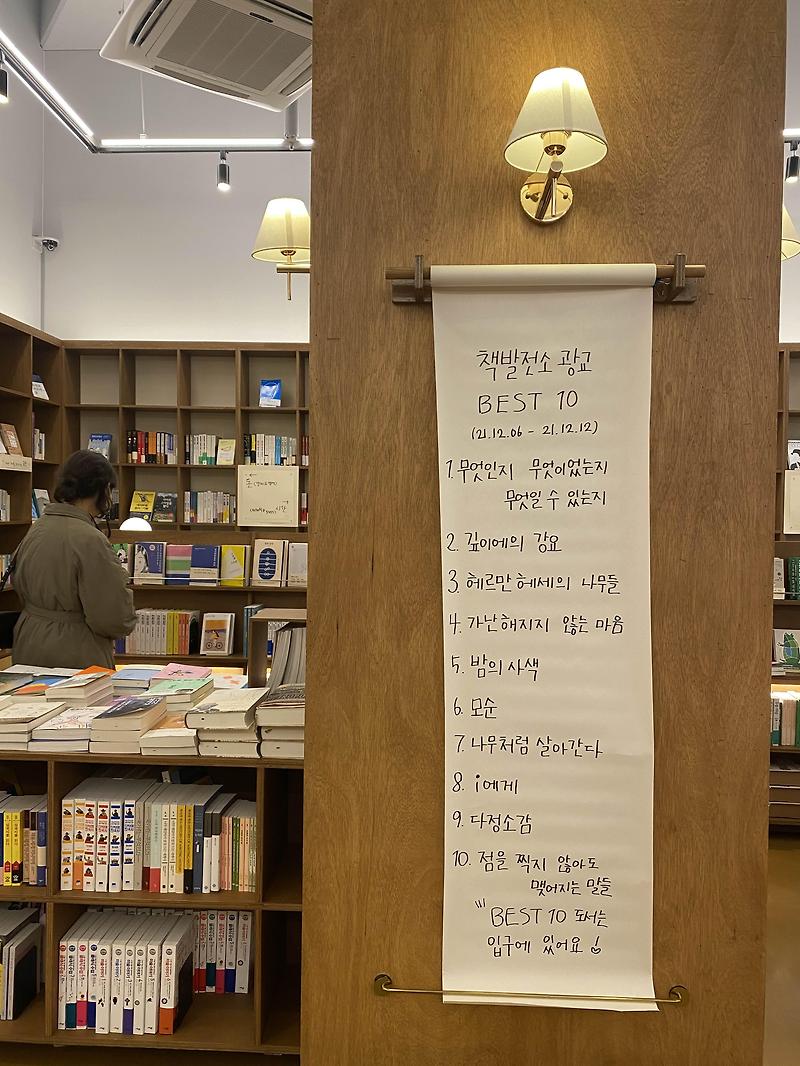 책발전소 광교
BEST 10
(21.12.06 - 21.12.12)
1. 무엇인지 무엇이었는지
무엇일 수 있는지
2. 깊이에의 강요
3. 헤르만 헤세의 나무들
4. 가난해지지 않는 마음
5. 밤의 사색
6. 모순
7. 나무처럼 살아간다
8. i에게
9. 다정소감
10. 점을 찍지 않아도
맺어지는 말들
BEST 10 도서는
입구에 있어요